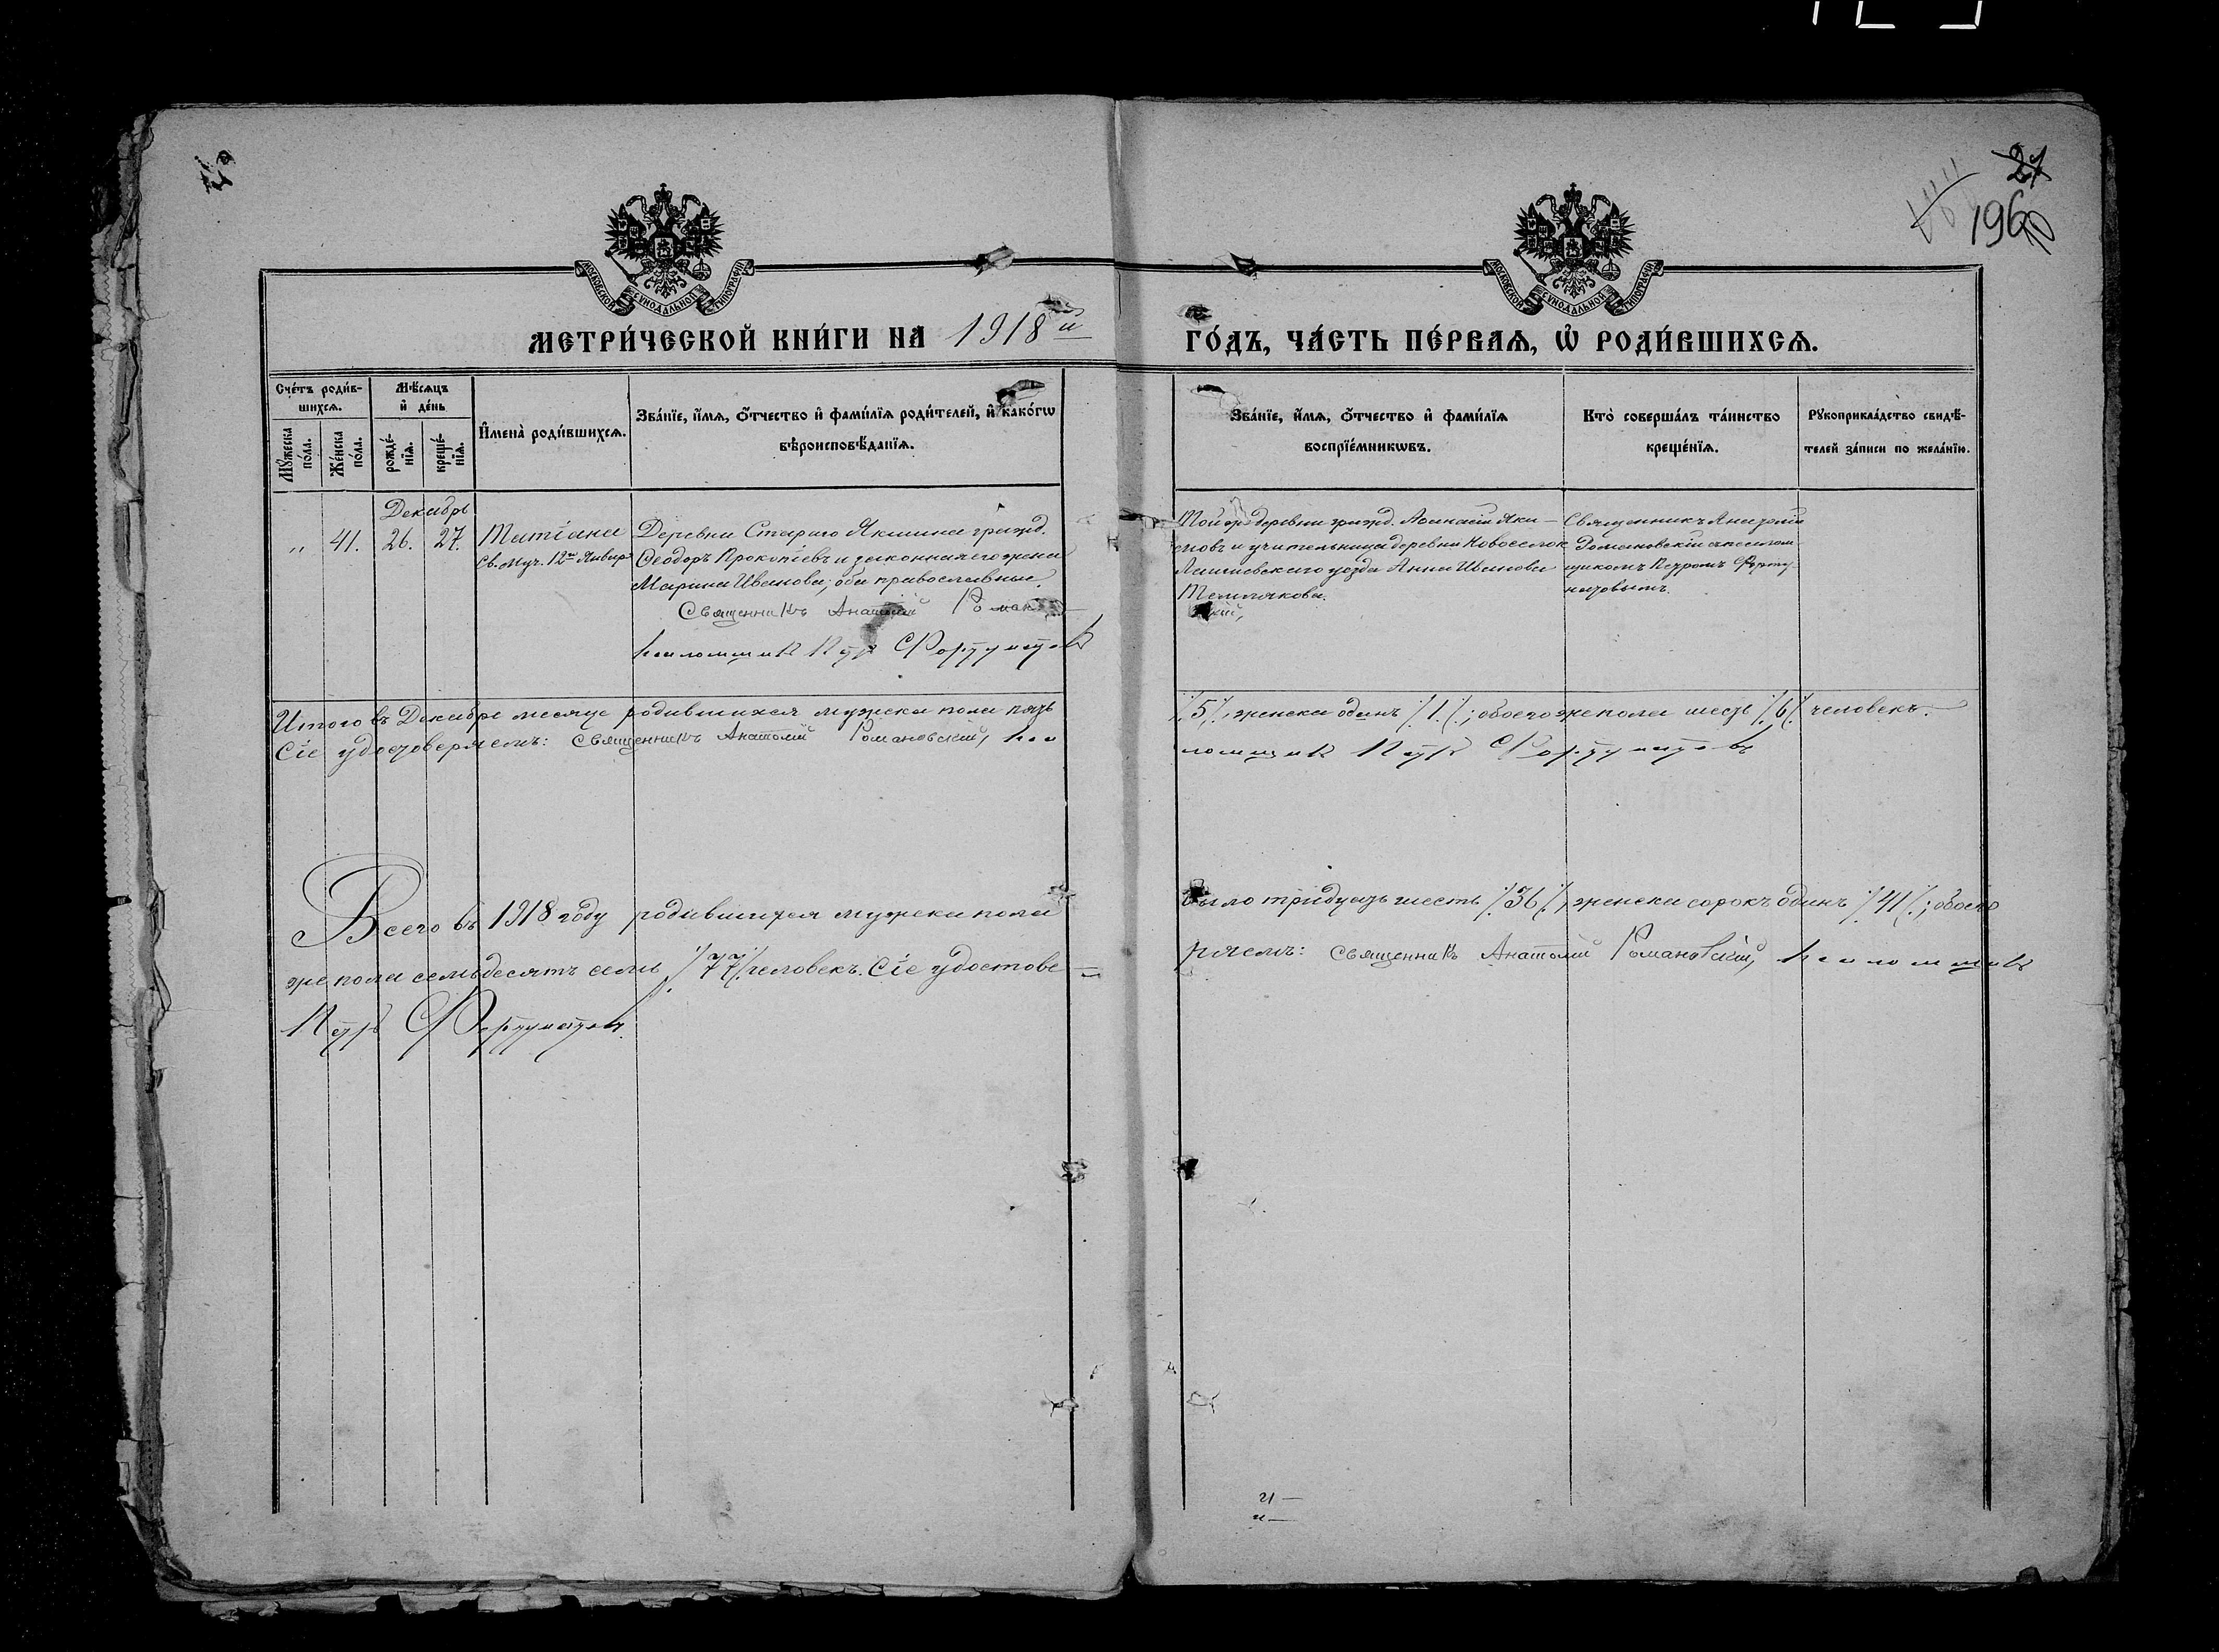 27
1960
МОСКОВСКОЙ СѴНОДАЛЬНОЙ ТИПОГРАФІИ
МОСКОВСКОЙ СѴНОДАЛЬНОЙ ТИПОГРАФІИ
МЕТРИ́ЧЕСКОЙ КНИ́ГИ НА 1918й
ГО́ДЪ, ЧА́СТЬ ПЕ́РВАѦ, Ѡ҆ РОДИ́ВШИХСѦ.
Сче́тъ роди́в-
шихсѧ.
Мꙋ́жеска по́ла.
Же́нска по́ла.
Мѣ́сѧцъ
и҆ де́нь
рожде́-
нїѧ.
креще́-
нїѧ.
И҆мена̀ роди́вшихсѧ.
Зва́нїе, и҆́мѧ, ѻ҆́тчество и҆ фами́лїѧ роди́телей, и҆ како́гѡ
вѣроисповѣ́данїѧ.
Зва́нїе, и҆́мѧ, ѻ҆́тчество и҆ фами́лїѧ
воспрїе́мникѡвъ.
Кто̀ соверша́лъ та́инство
креще́нїѧ.
Рꙋкоприкла́дство свидѣ́-
телей за́писи по жела́нїю.
Декабрь
„ 41. 26. 27. Татіана
Св. муч. 12го Январ
Деревни Стараго Якшина гражд.
Ѳеодоръ Прокопіевъ и законная его жена
Марина Иванова; оба православные.
Священникъ Анатолій Романов
Псаломщик Петр Фортунатов
Той же деревни гражд. Аѳанасій Яки–
мовъ и учительница деревни Новоселок
Лаишевского уезда Анна Иванова
скій,
Священникъ Анатолій
Романовскій с псалом
щикомъ Петромъ Форту
натовымъ.
Итого въ Декабре месяце родившихся мужска пола пять
%5%, женска одинъ %1%; обоего же пола шесть %6% человекъ.
Сіе удостоверяемъ: Священникъ Анатолій Романовскій, Пса
ломщик Петр Фортунатовъ
Всего въ 1918 году родившихся мужска пола
было тридцать шесть %36%, женска сорокъ одинъ %41%; обоего
же пола семьдесятъ семь %77% человекъ. Сіе удостове–
ряемъ: Священникъ Анатолій Романовскій, Псаломщик
Петр Фортунатов.